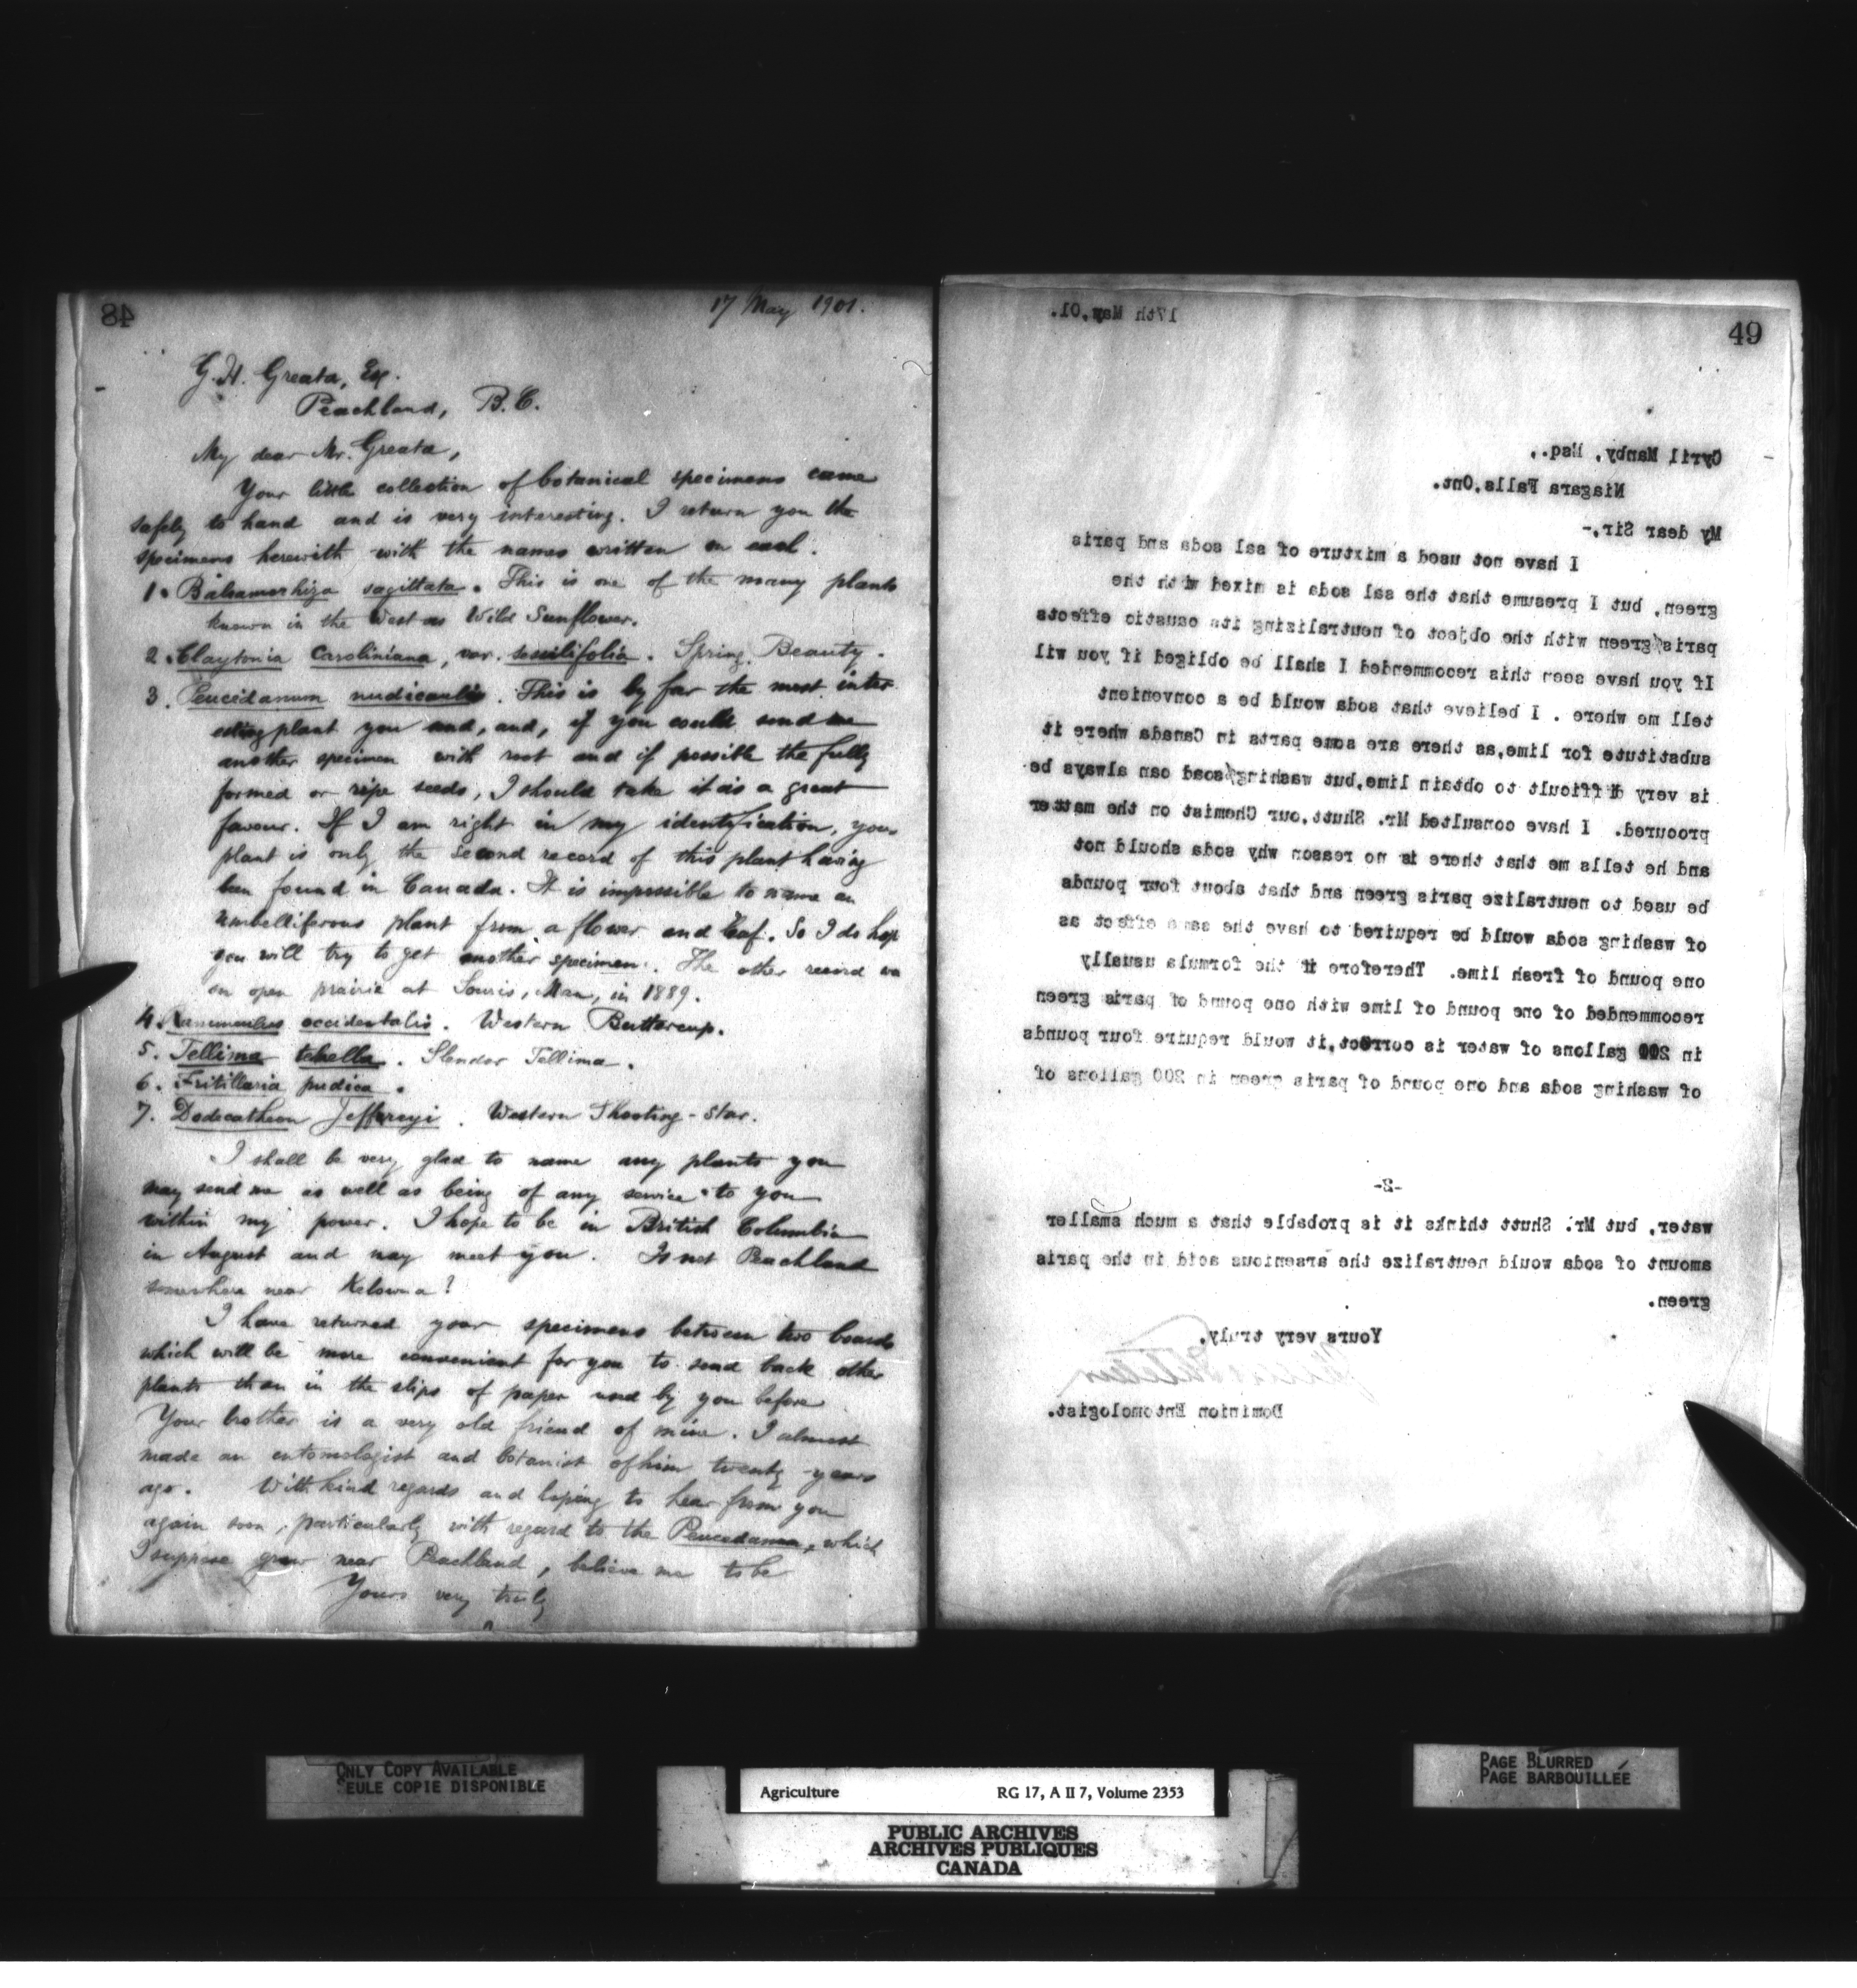 48
17 May 1901.
G. H. Greata, Esq.
Peachland, B.C.
My dear Mr. Greata,
Your little collection of botanical specimens came
safely to hand and is very interesting. I return you the
specimens herewith with the names written on each.
1. Balsamorhiza sagittata. This is one of the many plants
known in the West as Wild Sunflower.
2. Claytonia Caroliniana, var. sessilifolia. Spring Beauty.
3. Peucedanum nudicaulis. This is by far the most inter-
esting plant you send, and, if you could send me
another specimen with root and if possible the fully
formed or ripe seeds, I should take it as a great
favour. If I am right in my identification, your
plant is only the second record of this plant having
been found in Canada. It is impossible to name an
umbelliferous plant from a flower and leaf. So I do hope
you will try to get another specimen. The other record was
on open prairie at Souris, Man, in 1889.
4. Ranunculus occidentalis. Western Buttercup.
5. Tellima tenella. Slender Tellima.
6. Fritillaria pudica.
7. Dodecatheon Jeffreyi. Western Shooting-Star.
I shall be very glad to name any plants you
may send me as well as being of any service to you
within my power. I hope to be in British Columbia
in August and may meet you. Is not Peachland
somewhere near Kelowna?
I have returned your specimens between two boards
which will be more convenient for you to send back other
plants than in the slips of paper used by you before
Your brother is a very old friend of mine. I almost
made an entomologist and botanist of him twenty years
ago. With kind regards and hoping to hear from you
again soon, particularly with regard to the Peucedanum, which
I suppose grew near Peachland, believe me to be
Yours very truly
49
17th May,01.
Cyril Manby, Esq.,
Niagara Falls,Ont.
My dear Sir,-
I have not used a mixture of sal soda and paris
green, but I presume that the sal soda is mixed with the
paris green with the object of neutralizing its caustic effects
If you have seen this recommended I shall be obliged if you wil
tell me where . I believe that soda would be a convenient
substitute for lime,as there are some parts in Canada where it
is very difficult to obtain lime,but washing soad can always be
procured. I have consulted Mr. Shutt,our Chemist on the matter
and he tells me that there is no reason why soda should not
be used to neutralize paris green and that about four pounds
of washing soda would be required to have the same effect as
one pound of fresh lime. Therefore if the formula usually
recommended of one pound of lime with one pound of paris green
in 200 gallons of water is correct,it would require four pounds
of washing soda and one pound of paris green in 200 gallons of
-2-
water, but Mr. Shutt thinks it is probable that a much smaller
amount of soda would neutralize the arsenious acid in the paris
green.
Yours very truly,
Dominion Entomologist.
ONLY COPY AVAILABLE
SEULE COPIE DISPONIBLE
Agriculture RG 17, A II 7, Volume 2353
PUBLIC ARCHIVES
ARCHIVES PUBLIQUES
CANADA
PAGE BLURRED
PAGE BARBOUILLÉE